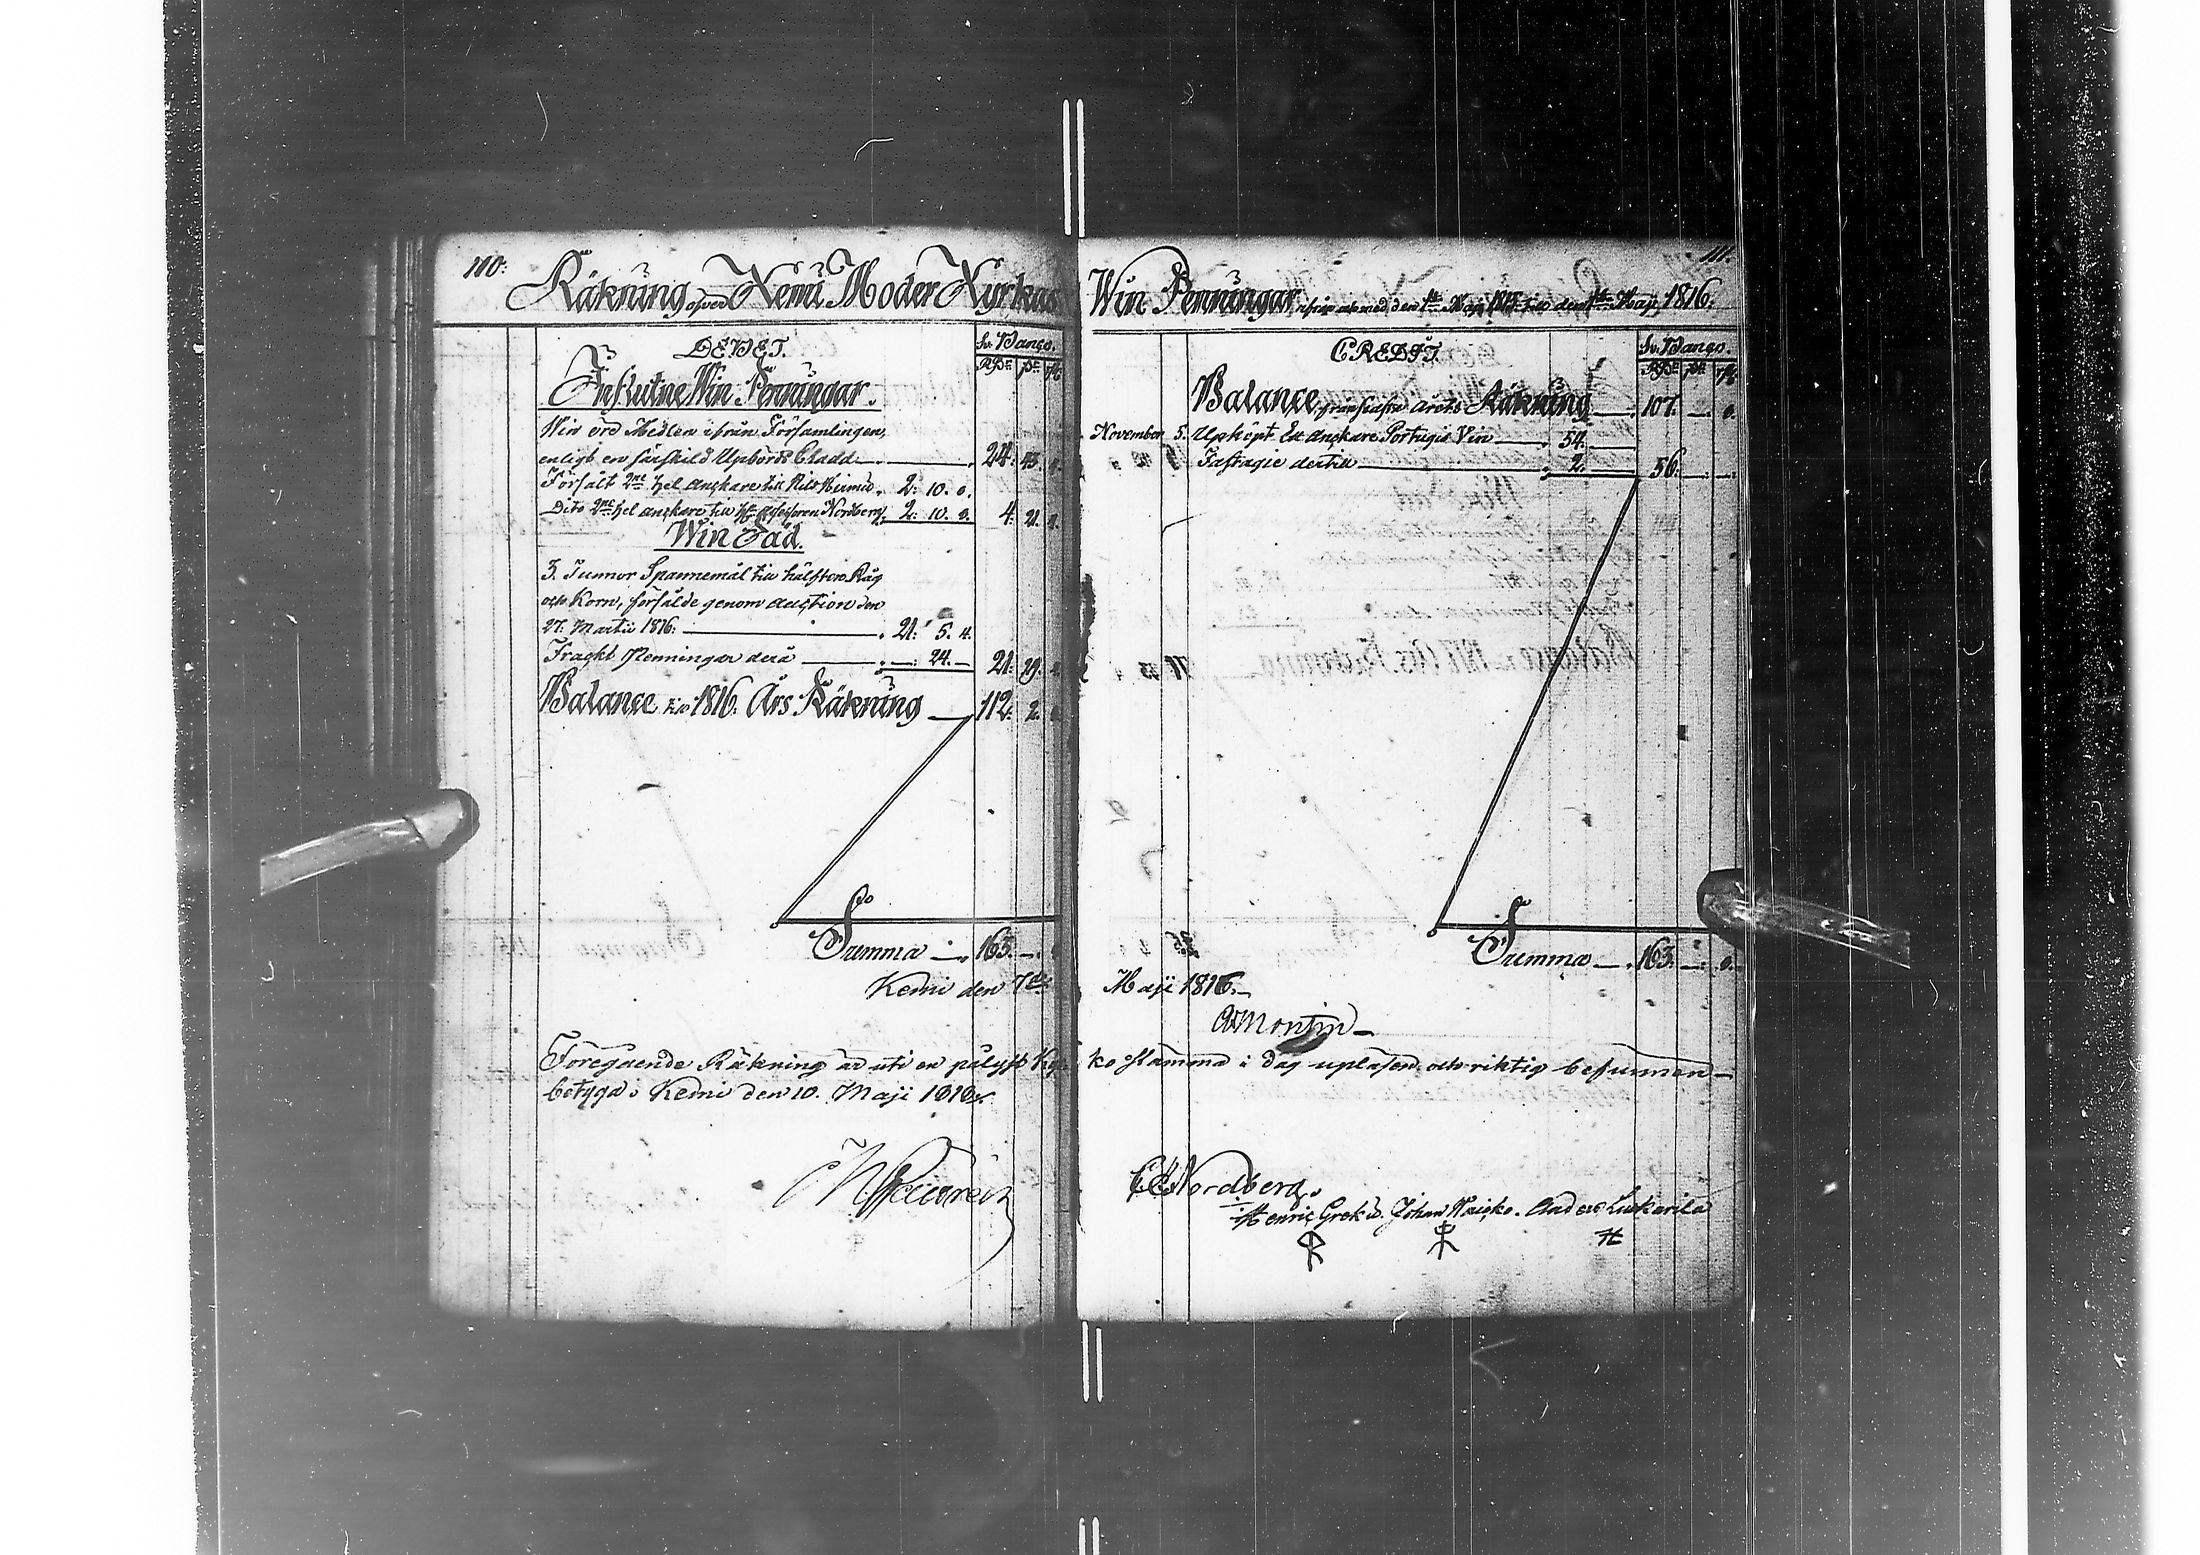 110:
Räkning öfver Kemi Moder Kyrkas
DEBET.
Sv. Banco.
RDr
Influtne Win Penningar.
Win ört Medlen ifrån Församlingen,
enligt en särskild Upbörds Längd 24:
Försålt hel anckare till 2: 10. 0.
Dito hel anckare till Nordberg 2: 10. 4: 21.
Win Säd.
3. Tunnor Spannemål till hälften Råg
och Korn, försålde genom auction den
27: Martii 1816: 21: 5. 4.
Frackt Penningar derå —: 24. — 21: 29.
Balance till 1816. Års Räkning 112: 2.
Summa 163. —.
Kemi den 7de
Föregående Räkning är uti en pålyst Kyr
betygar Kemi den 10. Maji 1816
111.
Win Penningar ifrån och med den 1ste Maji 1815 till den 1ste Maji 1816.
CREDIT.
Sv. Banco.
RDr
Balance från sistl. årets Räkning 107. —. 8.
November 5. Upköpt Ett anckare Portugis Vin 54.
Fastagie dertill 2. 56. —. —.
Summa — 163. —: 8.
Maji 1816.—
A. Montin—
ko stämma i dag upläsen och riktig befunnen—
Nordberg.
Henric Grek Johan Anders